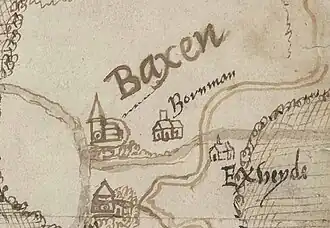 Baxen
Bornman
Exheyde